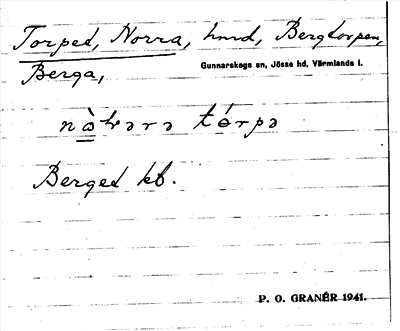 Torpet, Norra, hmd, Bergtorpen,
Berga,
Gunnarskogs sn, Jösse hd, Värmlands l.
nòrərə tórpə
Berget kb.
P. O. GRANÉR 1941.